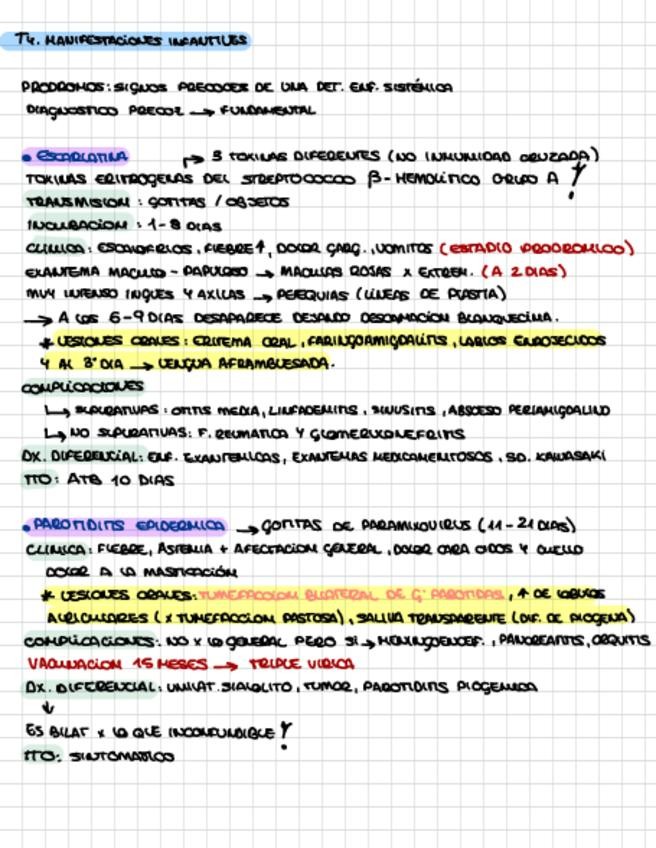 T4. MANIFESTACIONES INFANTILES
PRODROMOS: SIGNOS PRECOCES DE UNA DET. ENF. SISTÉMICA
DIAGNOSTICO PRECOZ → FUNDAMENTAL
• ESCARLATINA ↱ 3 TOXINAS DIFERENTES (NO INMUNIDAD CRUZADA)
TOXINAS ERITROGENAS DEL STREPTOCOCCO β-HEMOLÍTICO GRUPO A !
TRANSMISION: GOTITAS / OBJETOS
INCUBACION: 1-8 DIAS
CLINICA: ESCALOFRIOS, FIEBRE↑, DOLOR GARG., VOMITOS (ESTADIO PRODROMICO)
EXANTEMA MACULO-PAPULOSO → MACULAS ROJAS x EXTREM. (A 2 DIAS)
MUY INTENSO INGLES Y AXILAS → PETEQUIAS (LÍNEAS DE PASTIA)
→ A LOS 6-9 DIAS DESAPARECE DEJANDO DESCAMACION BLANQUECINA.
* LESIONES ORALES: ERITEMA ORAL, FARINGOAMIGDALITIS, LABIOS ENROJECIDOS
Y AL 3º DIA → LENGUA AFRAMBUESADA.
COMPLICACIONES
↳ SUPURATIVAS: OTITIS MEDIA, LINFADENITIS, SINUSITIS, ABSCESO PERIAMIGDALINO
↳ NO SUPURATIVAS: F. REUMATICA Y GLOMERULONEFRITIS
DX. DIFERENCIAL: ENF. EXANTEMICAS, EXANTEMAS MEDICAMENTOSOS, SD. KAWASAKI
TTO: ATB 10 DIAS
• PAROTIDITIS EPIDERMICA → GOTITAS DE PARAMIXOVIRUS (11-21 DIAS)
CLINICA: FIEBRE, ASTENIA + AFECTACION GENERAL, DOLOR CARA OIDOS Y CUELLO
DOLOR A LA MASTICACIÓN
* LESIONES ORALES: TUMEFACCION BILATERAL DE Gº PAROTIDAS, ↑ DE LOBULOS
AURICULARES (x TUMEFACCION PASTOSA), SALIVA TRANSPARENTE (DIF. DE PIOGENA)
COMPLICACIONES: NO x LO GENERAL PERO SI → MENINGOENCEF., PANCREATITIS, ORQUITIS
VACUNACION 15 MESES → TRIPLE VIRICA
DX. DIFERENCIAL: UNILAT. SIALOLITO, TUMOR, PAROTIDITIS PIOGENICA
↓
ES BILAT x LO QUE INCONFUNDIBLE !
TTO: SINTOMATICO